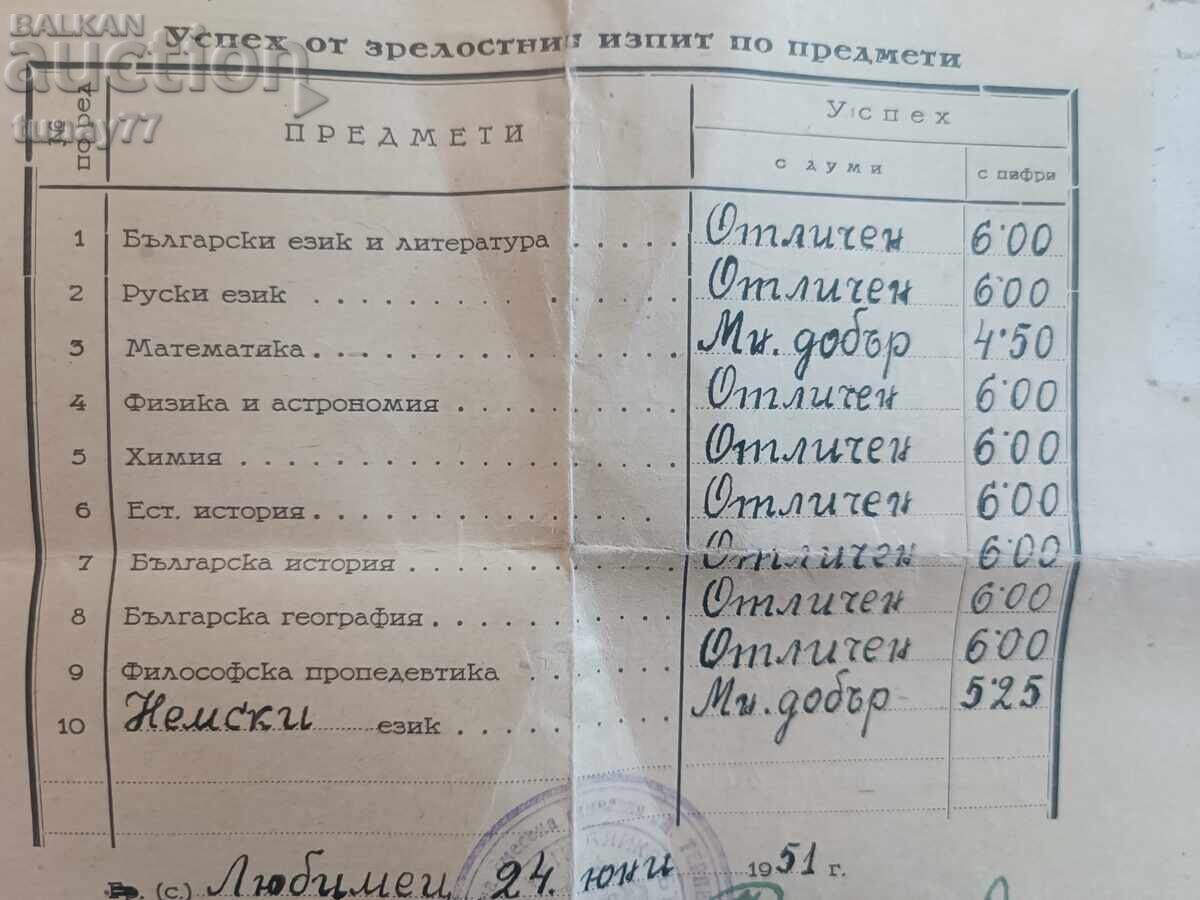 BALKAN
auction
tunay77
Успех от зрелостния изпит по предмети
№ по ред
ПРЕДМЕТИ
Успех
с думи
с цифри
1 Български език и литература ..... Отличен 6·00
2 Руски език ..... Отличен 6·00
3 Математика ..... Мн. добър 4·50
4 Физика и астрономия ..... Отличен 6·00
5 Химия ..... Отличен 6·00
6 Ест. история ..... Отличен 6·00
7 Българска история ..... Отличен 6·00
8 Българска география ..... Отличен 6·00
9 Философска пропедевтика ..... Отличен 6·00
10 Немски език ..... Мн. добър 5·25
Гр. (с.) Любимец 24. юни 1951 г.